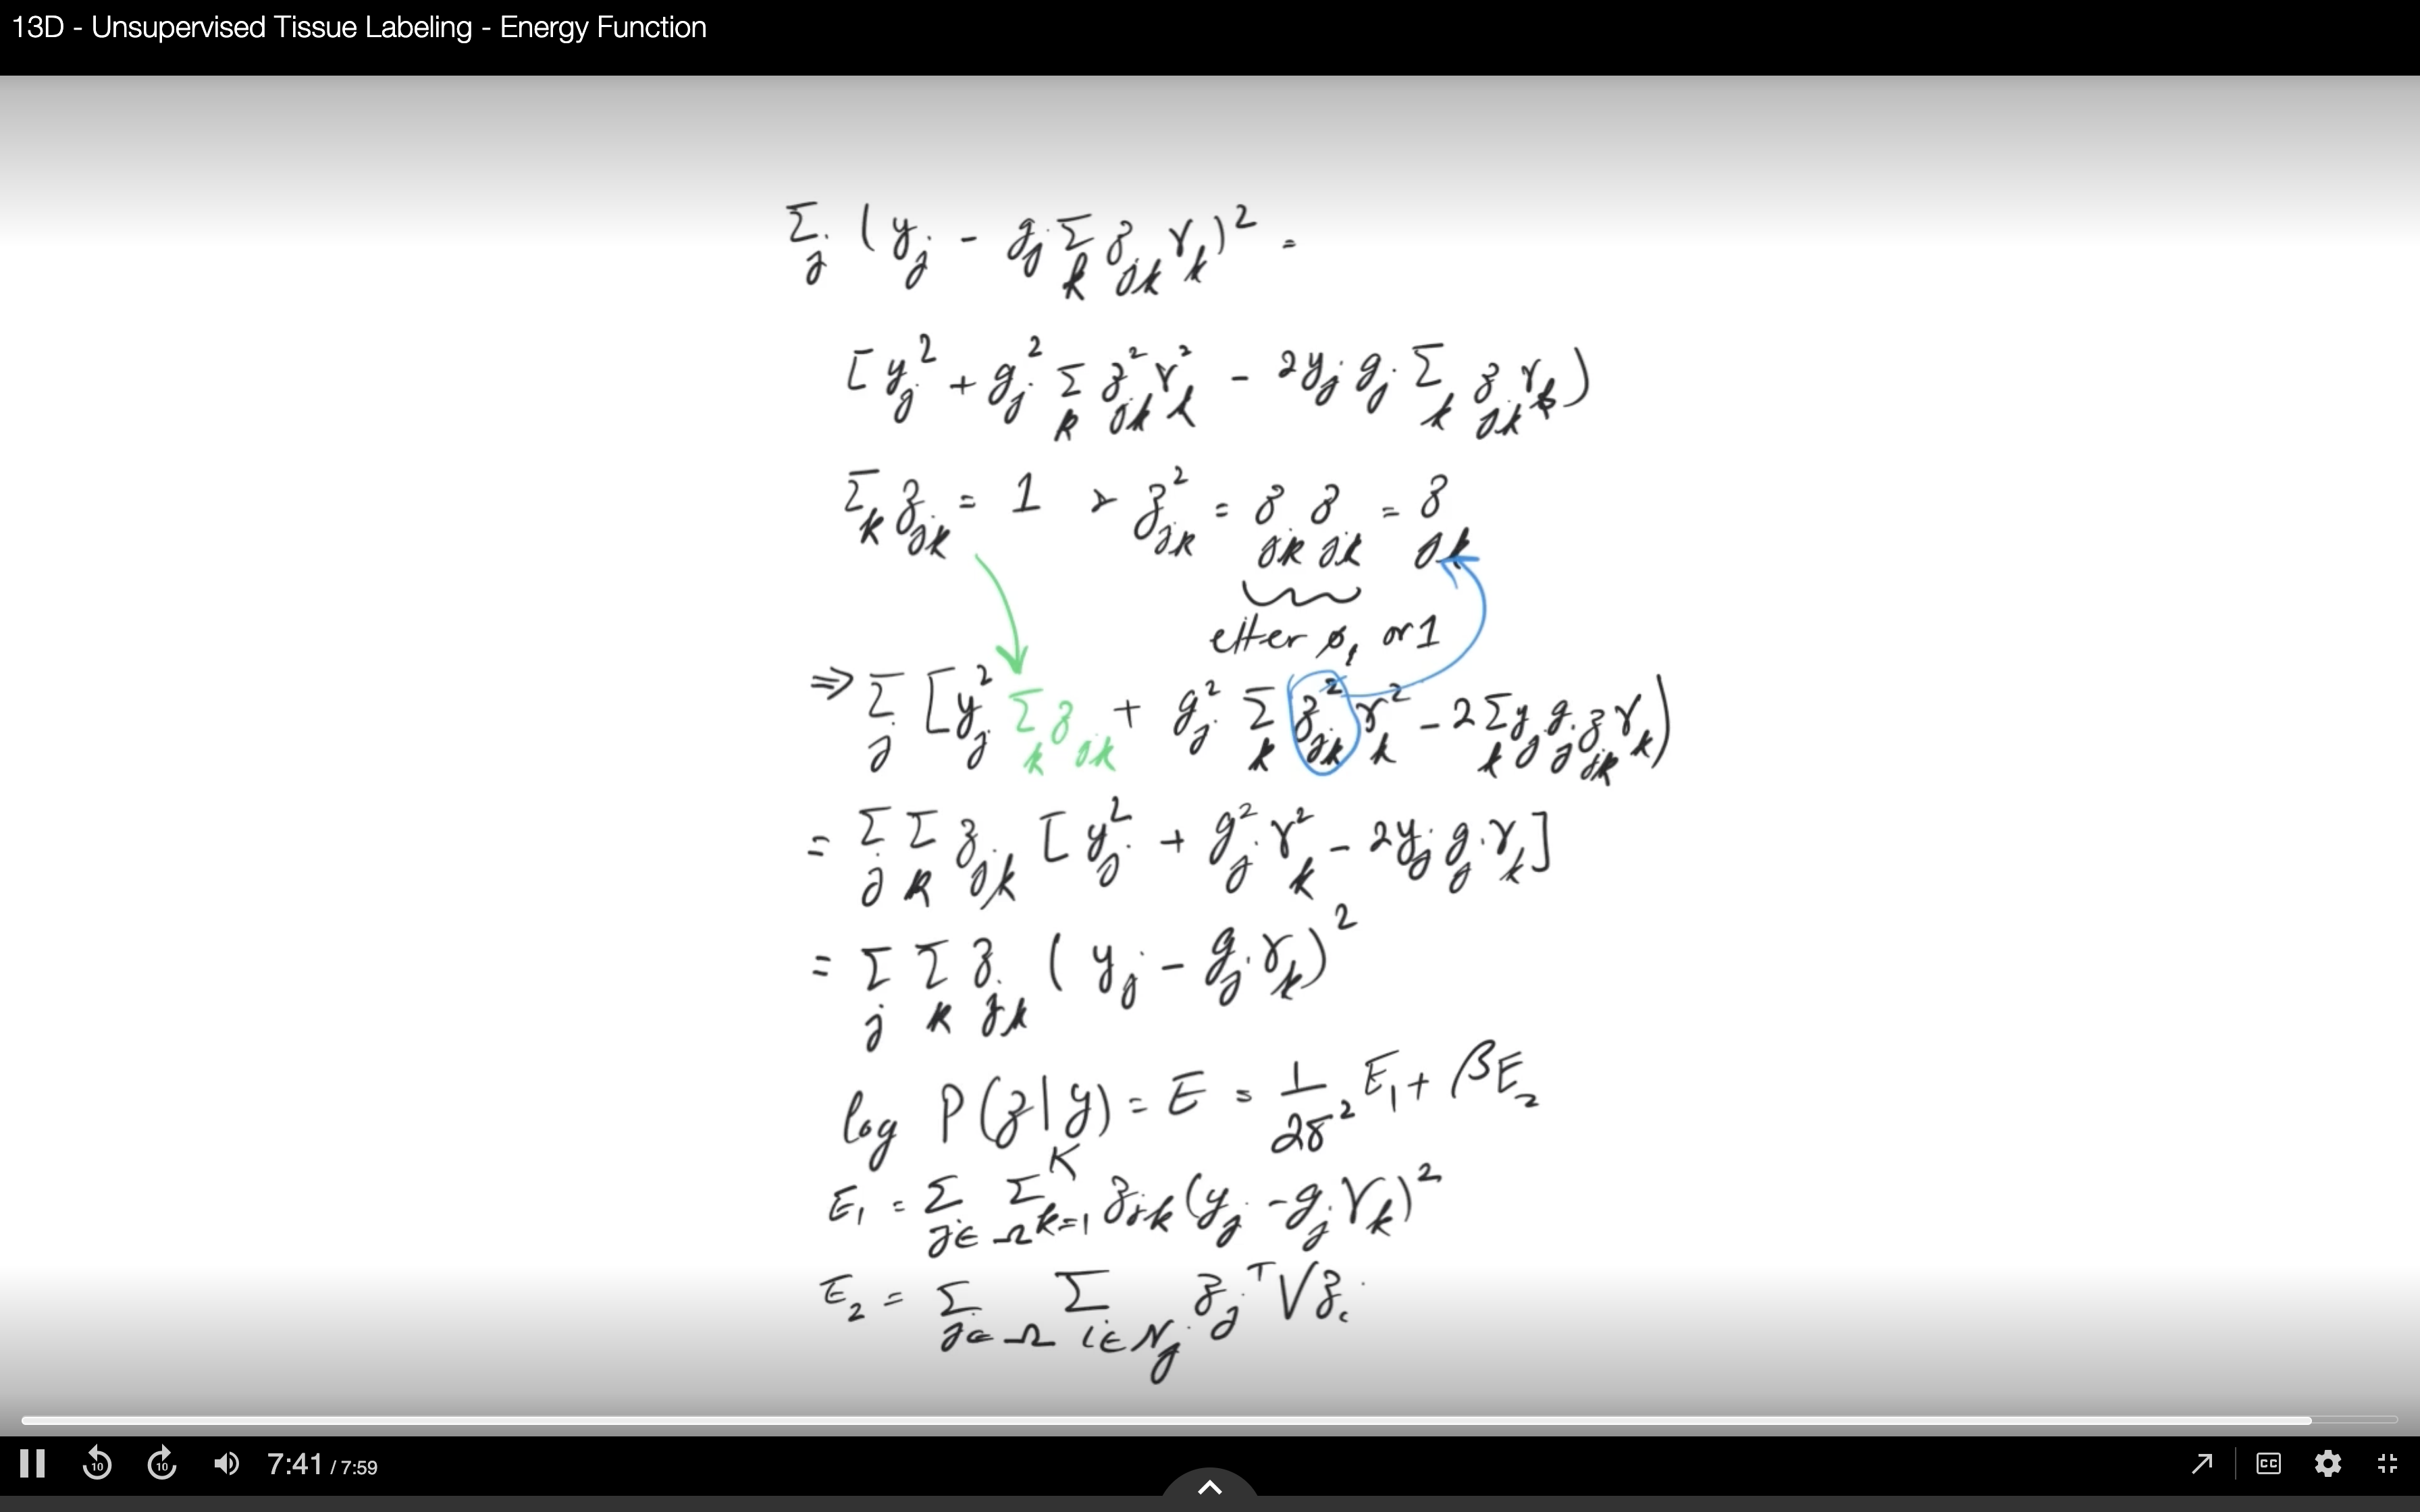 13D - Unsupervised Tissue Labeling - Energy Function
Σ_j (y_j - g_j Σ_k z_jk γ_k)² =
[y_j² + g_j² Σ_k z_jk² γ_k² - 2y_j g_j Σ_k z_jk γ_k)
Σ_k z_jk = 1 > z_jk² = z_jk z_jk = z_jk
either ∅, or 1
⇒ Σ_j [y_j² Σ_k z_jk + g_j² Σ_k z_jk² γ_k² - 2 Σ_k y_j g_j z_jk γ_k)
= Σ_j Σ_k z_jk [y_j² + g_j² γ_k² - 2y_j g_j γ_k]
= Σ_j Σ_k z_jk (y_j - g_j γ_k)²
log P(z|y) = E = 1/2σ² E₁ + βE₂
E₁ = Σ_{j∈Ω} Σ_{k=1}^K z_jk (y_j - g_j γ_k)²
E₂ = Σ_{j∈Ω} Σ_{i∈N_j} z_j^T V z_i
10 10 7:41 / 7:59 CC